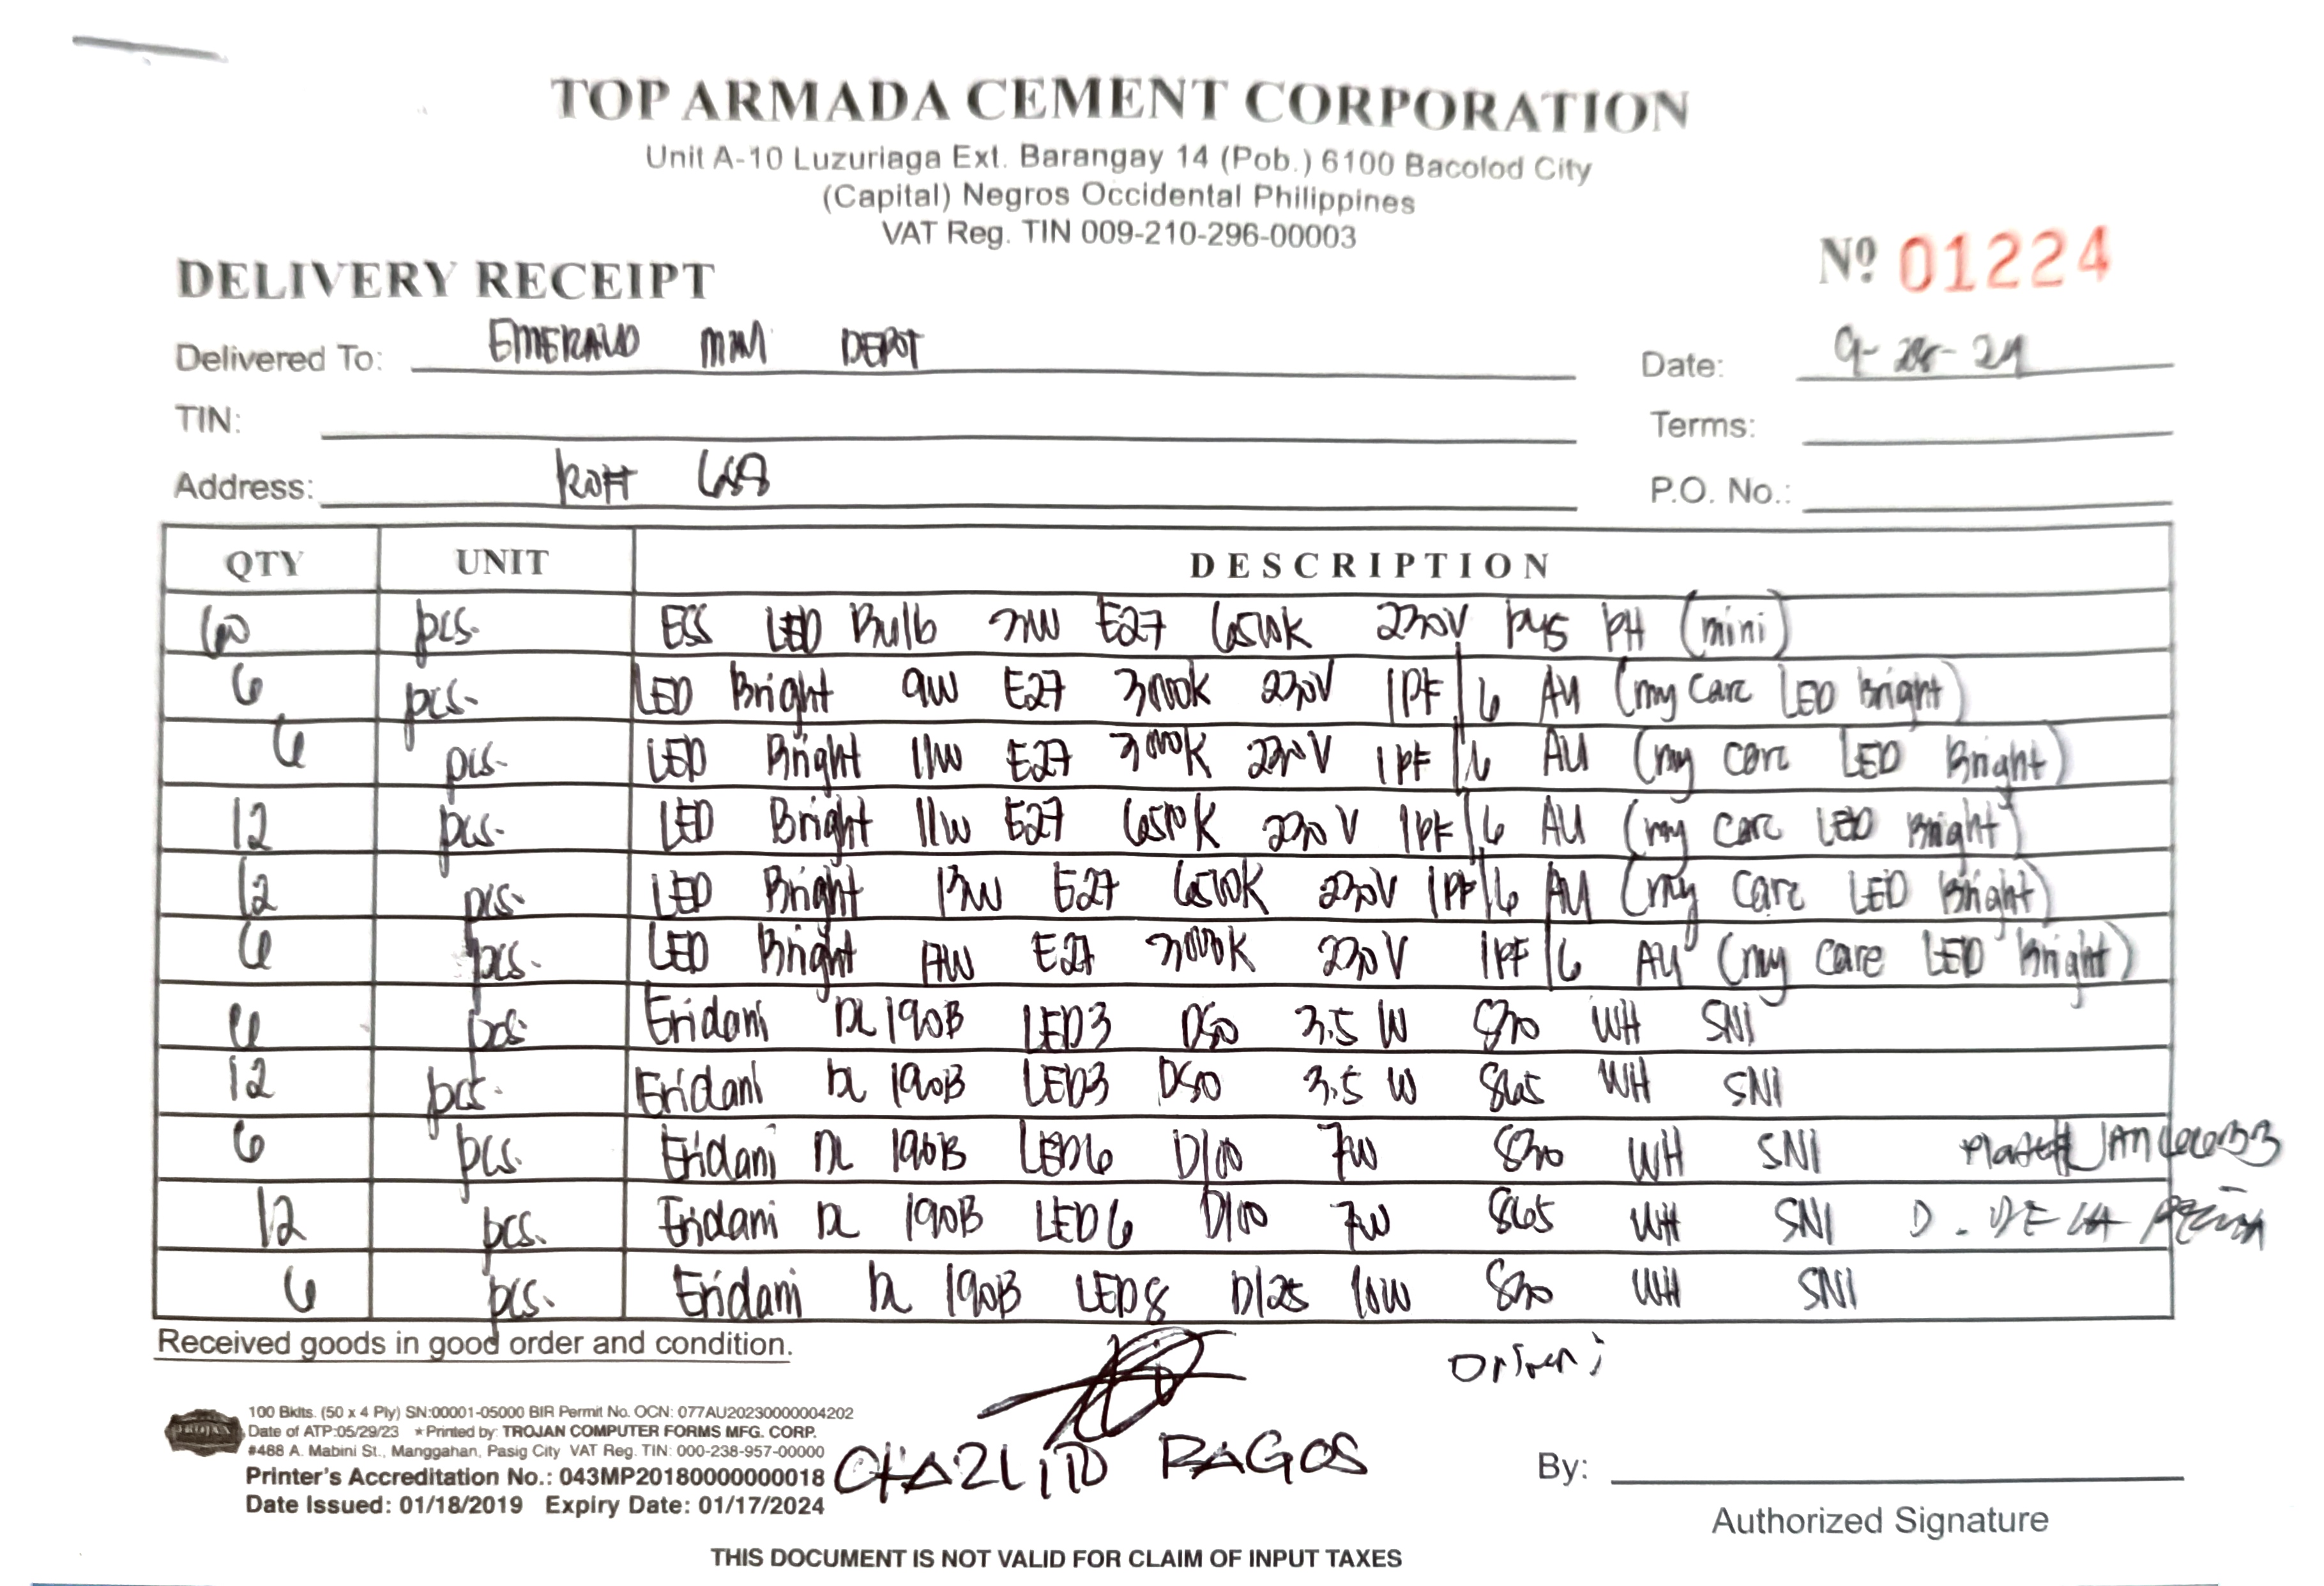 TOP ARMADA CEMENT CORPORATION
Unit A-10 Luzuriaga Ext. Barangay 14 (Pob.) 6100 Bacolod City
(Capital) Negros Occidental Philippines
VAT Reg. TIN 009-210-296-00003
DELIVERY RECEIPT Nº 01224
Delivered To: EMERALD MM DEPOT Date: 9-28-24
TIN: Terms:
Address: P.O. No.:
QTY UNIT DESCRIPTION
60 pcs. ESS LED Bulb E27 6500K 230V PH (mini)
6 pcs. LED Bright 9W E27 3000K 230V 1PF/6 AU (my care LED Bright)
6 pcs. LED Bright 11W E27 3000K 230V 1PF/6 AU (my care LED Bright)
12 pcs. LED Bright 11W E27 6500K 230V 1PF/6 AU (my care LED Bright)
12 pcs. LED Bright 13W E27 6500K 230V 1PF/6 AU (my care LED Bright)
6 pcs. LED Bright E27 3000K 230V 1PF/6 AU (my care LED Bright)
6 pcs. Eridani DL 190B LED3 D80 3.5 W 830 WH SNI
12 pcs. Eridani DL 190B LED3 D80 3.5 W 865 WH SNI
6 pcs. Eridani DL 190B LED6 D100 7W 830 WH SNI
12 pcs. Eridani DL 190B LED6 D100 7W 865 WH SNI D. DE LA PEÑA
6 pcs. Eridani DL 190B LED8 D125 10W 830 WH SNI
Received goods in good order and condition.
TROJAN
100 Bklts. (50 x 4 Ply) SN:00001-05000 BIR Permit No. OCN: 077AU20230000004202
Date of ATP:05/29/23 ★Printed by: TROJAN COMPUTER FORMS MFG. CORP.
#488 A. Mabini St., Manggahan, Pasig City VAT Reg. TIN: 000-238-957-00000
Printer's Accreditation No.: 043MP20180000000018
Date Issued: 01/18/2019 Expiry Date: 01/17/2024
RAGOS
By:
Authorized Signature
THIS DOCUMENT IS NOT VALID FOR CLAIM OF INPUT TAXES